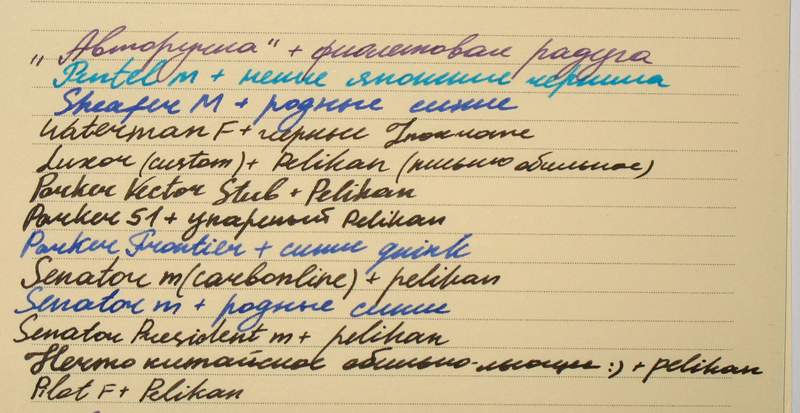 „Авторучка“ + фиолетовая радуга
Pentel m + некие японские чернила
Sheafer M + родные синие
Waterman F + черные
Luxor (custom) + Pelikan (письмо обильное)
Parker Vector Stub + Pelikan
Parker 51 + упареный Pelikan
Parker Frontier + синие quink
Senator m (carbonline) + pelikan
Senator m + родные синие
Senator President m + pelikan
Нечто китайское обильно-льющее :) + pelikan
Pilot F + Pelikan